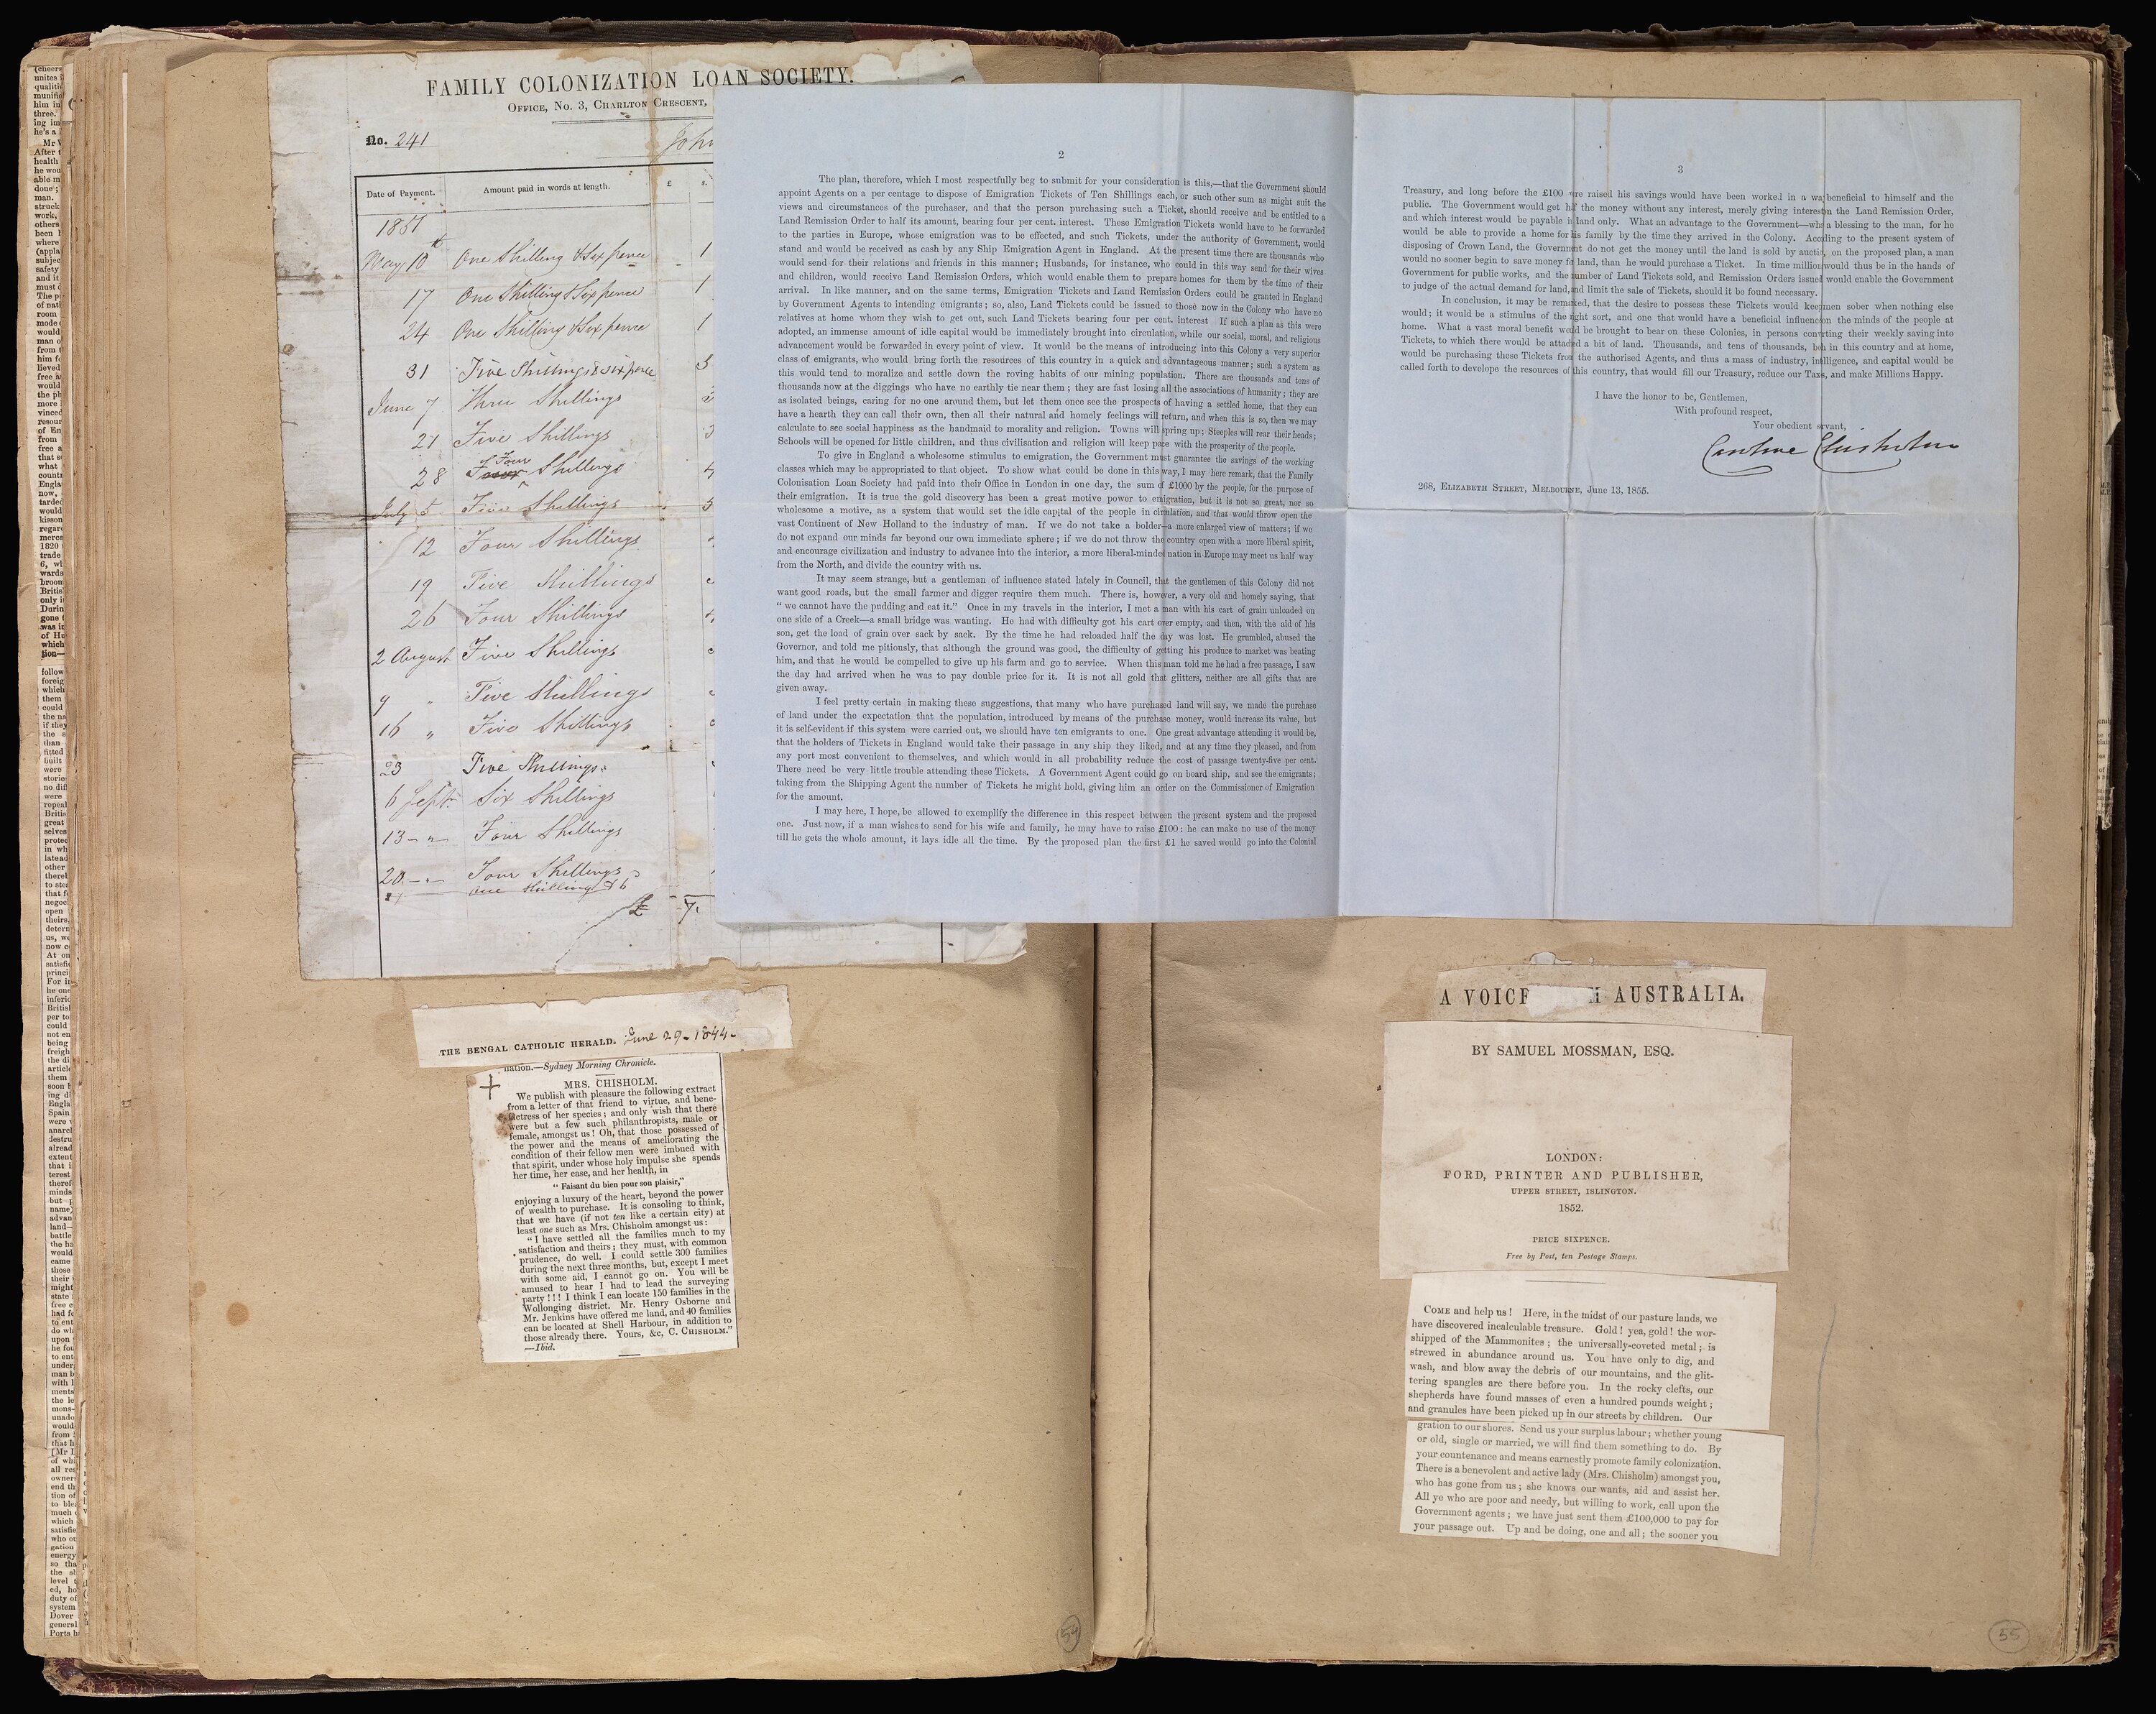 FAMILY COLONIZATION LOAN SOCIETY.
OFFICE, No. 3, CHARLTON CRESCENT,
No. 241
John
Date of Payment.
Amount paid in words at length.
£
s.
1851
May 10th One Shilling & Six pence 1
17 One Shilling & Six pence 1
24 One Shilling & Six pence 1
31 Five Shillings & six pence 5
June 7 Three Shillings 3
21 Five Shillings
28 Four Shillings 4
July 5 Five Shillings 5
12 Four Shillings
19 Five Shillings
26 Four Shillings 4
2 August Five Shillings
9 " Five Shillings
16 " Five Shillings
23 Five Shillings
6 Sept Six Shillings
13 - " - Four Shillings
20 - " - Four Shillings
one Shilling & 6
£ 7
THE BENGAL CATHOLIC HERALD. June 29-1844-
nation.—Sydney Morning Chronicle.
MRS. CHISHOLM.
We publish with pleasure the following extract
from a letter of that friend to virtue, and bene-
factress of her species; and only wish that there
were but a few such philanthropists, male or
female, amongst us! Oh, that those possessed of
the power and the means of ameliorating the
condition of their fellow men were imbued with
that spirit, under whose holy impulse she spends
her time, her ease, and her health, in
"Faisant du bien pour son plaisir,"
enjoying a luxury of the heart, beyond the power
of wealth to purchase. It is consoling to think,
that we have (if not ten like a certain city) at
least one such as Mrs. Chisholm amongst us:
"I have settled all the families much to my
satisfaction and theirs; they must, with common
prudence, do well. I could settle 300 families
during the next three months, but, except I meet
with some aid, I cannot go on. You will be
amused to hear I had to lead the surveying
party!!! I think I can locate 150 families in the
Wollonging district. Mr. Henry Osborne and
Mr. Jenkins have offered me land, and 40 families
can be located at Shell Harbour, in addition to
those already there. Yours, &c, C. CHISHOLM."
—Ibid.
54
2
The plan, therefore, which I most respectfully beg to submit for your consideration is this,—that the Government should
appoint Agents on a per centage to dispose of Emigration Tickets of Ten Shillings each, or such other sum as might suit the
views and circumstances of the purchaser, and that the person purchasing such a Ticket, should receive and be entitled to a
Land Remission Order to half its amount, bearing four per cent. interest. These Emigration Tickets would have to be forwarded
to the parties in Europe, whose emigration was to be effected, and such Tickets, under the authority of Government, would
stand and would be received as cash by any Ship Emigration Agent in England. At the present time there are thousands who
would send for their relations and friends in this manner; Husbands, for instance, who could in this way send for their wives
and children, would receive Land Remission Orders, which would enable them to prepare homes for them by the time of their
arrival. In like manner, and on the same terms, Emigration Tickets and Land Remission Orders could be granted in England
by Government Agents to intending emigrants; so, also, Land Tickets could be issued to those now in the Colony who have no
relatives at home whom they wish to get out, such Land Tickets bearing four per cent. interest If such a plan as this were
adopted, an immense amount of idle capital would be immediately brought into circulation, while our social, moral, and religious
advancement would be forwarded in every point of view. It would be the means of introducing into this Colony a very superior
class of emigrants, who would bring forth the resources of this country in a quick and advantageous manner; such a system as
this would tend to moralize and settle down the roving habits of our mining population. There are thousands and tens of
thousands now at the diggings who have no earthly tie near them; they are fast losing all the associations of humanity; they are
as isolated beings, caring for no one around them, but let them once see the prospects of having a settled home, that they can
have a hearth they can call their own, then all their natural and homely feelings will return, and when this is so, then we may
calculate to see social happiness as the handmaid to morality and religion. Towns will spring up; Steeples will rear their heads;
Schools will be opened for little children, and thus civilisation and religion will keep pace with the prosperity of the people.
To give in England a wholesome stimulus to emigration, the Government must guarantee the savings of the working
classes which may be appropriated to that object. To show what could be done in this way, I may here remark, that the Family
Colonisation Loan Society had paid into their Office in London in one day, the sum of £1000 by the people, for the purpose of
their emigration. It is true the gold discovery has been a great motive power to emigration, but it is not so great, nor so
wholesome a motive, as a system that would set the idle capital of the people in circulation, and that would throw open the
vast Continent of New Holland to the industry of man. If we do not take a bolder—a more enlarged view of matters; if we
do not expand our minds far beyond our own immediate sphere; if we do not throw the country open with a more liberal spirit,
and encourage civilization and industry to advance into the interior, a more liberal-minded nation in Europe may meet us half way
from the North, and divide the country with us.
It may seem strange, but a gentleman of influence stated lately in Council, that the gentlemen of this Colony did not
want good roads, but the small farmer and digger require them much. There is, however, a very old and homely saying, that
"we cannot have the pudding and eat it." Once in my travels in the interior, I met a man with his cart of grain unloaded on
one side of a Creek—a small bridge was wanting. He had with difficulty got his cart over empty, and then, with the aid of his
son, get the load of grain over sack by sack. By the time he had reloaded half the day was lost. He grumbled, abused the
Governor, and told me pitiously, that although the ground was good, the difficulty of getting his produce to market was beating
him, and that he would be compelled to give up his farm and go to service. When this man told me he had a free passage, I saw
the day had arrived when he was to pay double price for it. It is not all gold that glitters, neither are all gifts that are
given away.
I feel pretty certain in making these suggestions, that many who have purchased land will say, we made the purchase
of land under the expectation that the population, introduced by means of the purchase money, would increase its value, but
it is self-evident if this system were carried out, we should have ten emigrants to one. One great advantage attending it would be,
that the holders of Tickets in England would take their passage in any ship they liked, and at any time they pleased, and from
any port most convenient to themselves, and which would in all probability reduce the cost of passage twenty-five per cent.
There need be very little trouble attending these Tickets. A Government Agent could go on board ship, and see the emigrants;
taking from the Shipping Agent the number of Tickets he might hold, giving him an order on the Commissioner of Emigration
for the amount.
I may here, I hope, be allowed to exemplify the difference in this respect between the present system and the proposed
one. Just now, if a man wishes to send for his wife and family, he may have to raise £100: he can make no use of the money
till he gets the whole amount, it lays idle all the time. By the proposed plan the first £1 he saved would go into the Colonial
3
Treasury, and long before the £100 were raised his savings would have been worked in a way beneficial to himself and the
public. The Government would get half the money without any interest, merely giving interest on the Land Remission Order,
and which interest would be payable in land only. What an advantage to the Government—what a blessing to the man, for he
would be able to provide a home for his family by the time they arrived in the Colony. According to the present system of
disposing of Crown Land, the Government do not get the money until the land is sold by auction, on the proposed plan, a man
would no sooner begin to save money for land, than he would purchase a Ticket. In time millions would thus be in the hands of
Government for public works, and the number of Land Tickets sold, and Remission Orders issued would enable the Government
to judge of the actual demand for land, and limit the sale of Tickets, should it be found necessary.
In conclusion, it may be remarked, that the desire to possess these Tickets would keep men sober when nothing else
would; it would be a stimulus of the right sort, and one that would have a beneficial influence on the minds of the people at
home. What a vast moral benefit would be brought to bear on these Colonies, in persons converting their weekly saving into
Tickets, to which there would be attached a bit of land. Thousands, and tens of thousands, both in this country and at home,
would be purchasing these Tickets from the authorised Agents, and thus a mass of industry, intelligence, and capital would be
called forth to develope the resources of this country, that would fill our Treasury, reduce our Taxes, and make Millions Happy.
I have the honor to be, Gentlemen,
With profound respect,
Your obedient servant,
Caroline Chisholm
268, ELIZABETH STREET, MELBOURNE, June 13, 1855.
A VOICE M AUSTRALIA.
BY SAMUEL MOSSMAN, ESQ.
LONDON:
FORD, PRINTER AND PUBLISHER,
UPPER STREET, ISLINGTON.
1852.
PRICE SIXPENCE.
Free by Post, ten Postage Stamps.
COME and help us! Here, in the midst of our pasture lands, we
have discovered incalculable treasure. Gold! yea, gold! the wor-
shipped of the Mammonites; the universally-coveted metal; is
strewed in abundance around us. You have only to dig, and
wash, and blow away the debris of our mountains, and the glit-
tering spangles are there before you. In the rocky clefts, our
shepherds have found masses of even a hundred pounds weight;
and granules have been picked up in our streets by children. Our
gration to our shores. Send us your surplus labour; whether young
or old, single or married, we will find them something to do. By
your countenance and means earnestly promote family colonization.
There is a benevolent and active lady (Mrs. Chisholm) amongst you,
who has gone from us; she knows our wants, aid and assist her.
All ye who are poor and needy, but willing to work, call upon the
Government agents; we have just sent them £100,000 to pay for
your passage out. Up and be doing, one and all; the sooner you
55